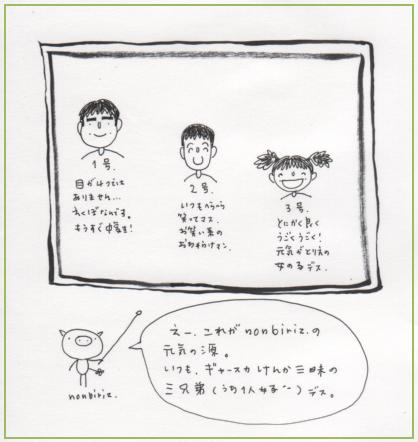 1号.
目が4つでは
ありません...
えくぼなんです。
もうすぐ中学生!
2号.
いつもへらへら
笑ってマス.
お笑い系の
おちゃらけマン.
3号.
とにかく良く
うごくうごく!
元気がとりえの
女の子デス.
えー.これがnonbiriz.の
元気の源。
いつも.ギャースカけんか三昧の
三兄弟(うち1人女子〃)デス。
nonbiriz.